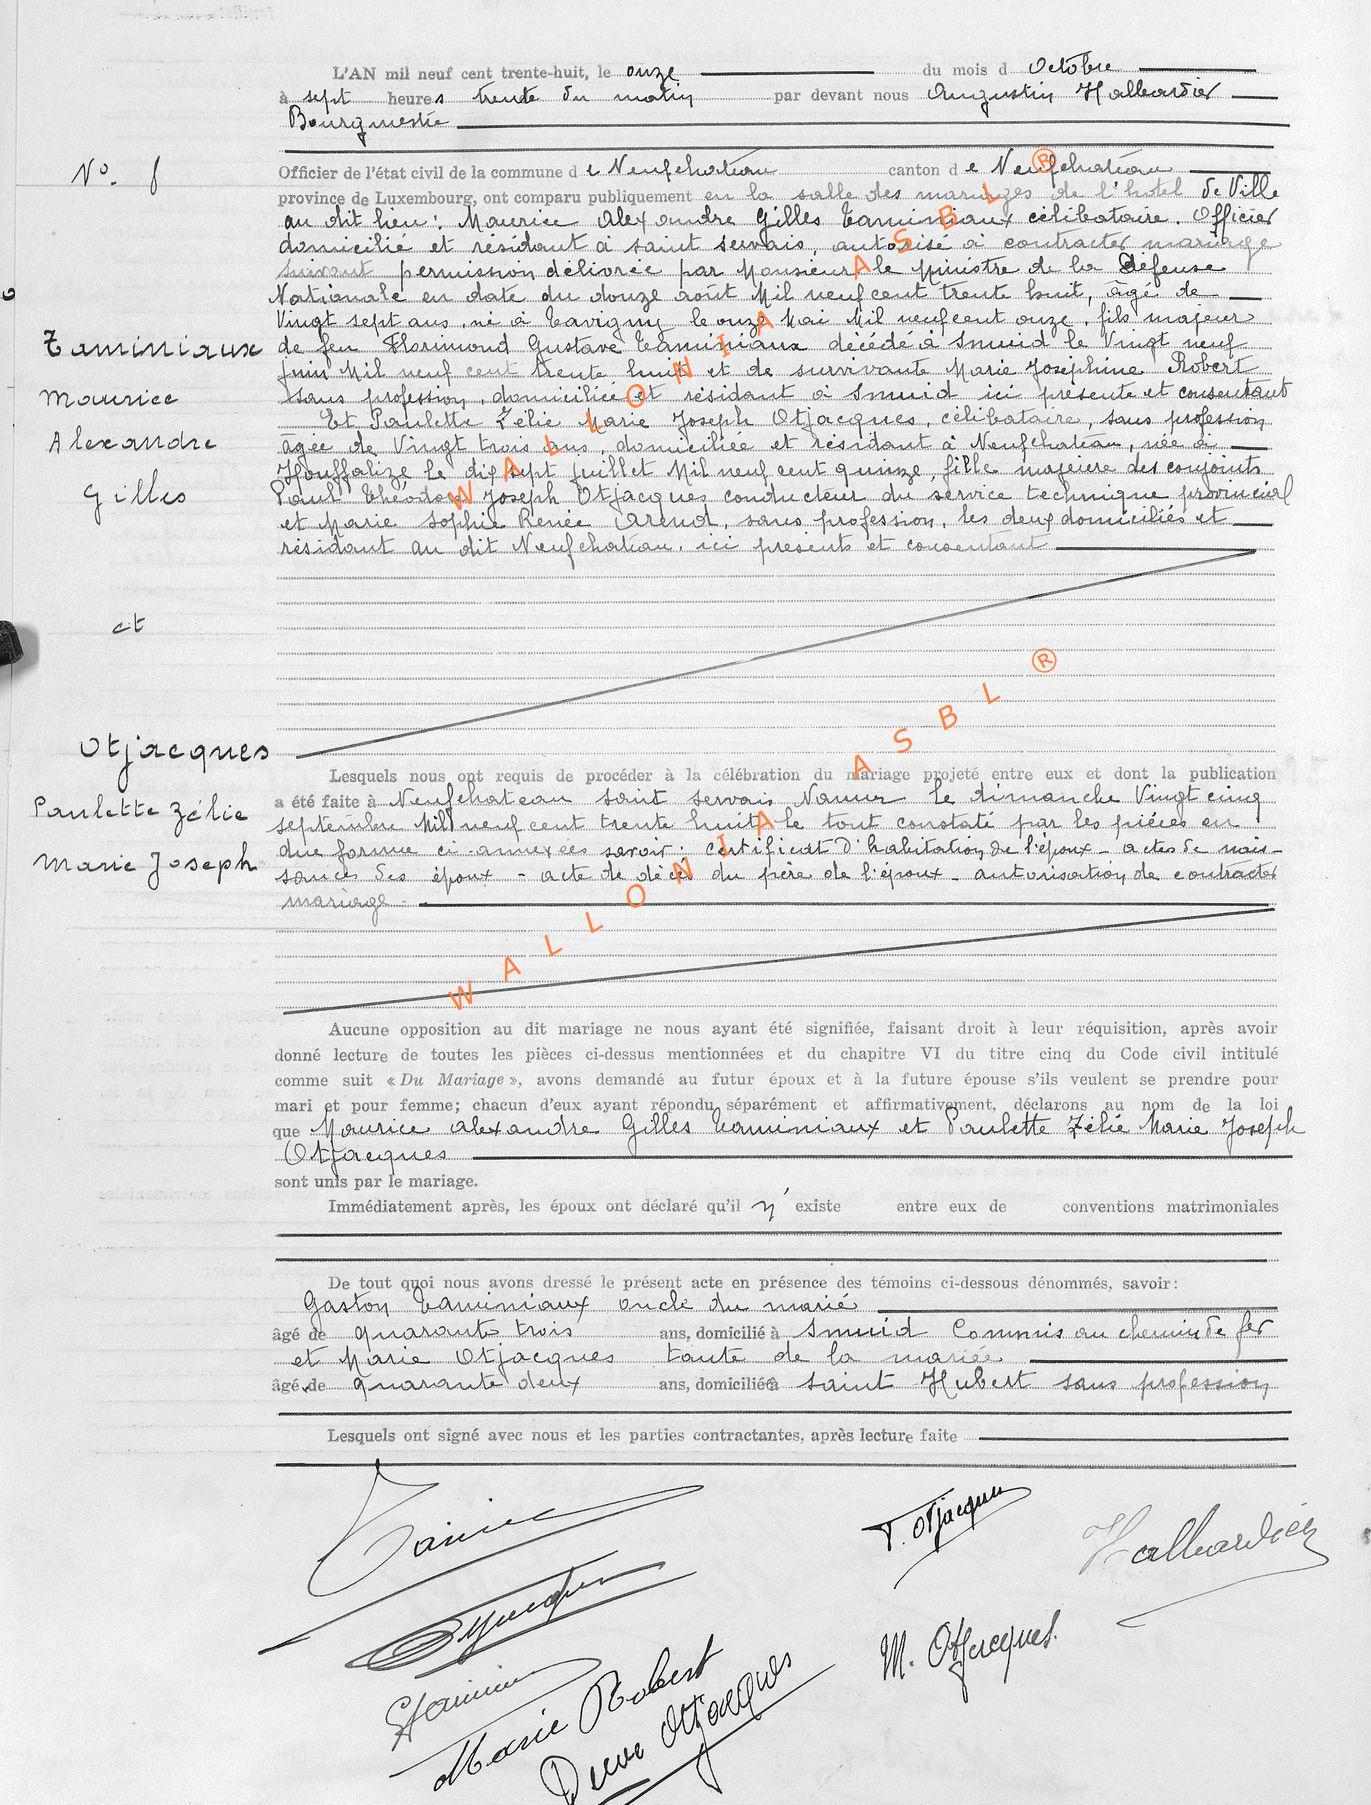 L'AN mil neuf cent trente-huit, le onze du mois d Octobre
à sept heures trente du matin par devant nous Augustin Hallardier
Bourgmestre
N°. 8
Officier de l'état civil de la commune d e Neufchateau canton d e Neufchateau
province de Luxembourg, ont comparu publiquement en la salle des mariages de l'hotel de Ville
au dit lieu: Maurice Alexandre Gilles Taminiaux célibataire. Officier
domicilié et résidant à saint servais, autorisé à contracter mariage
suivant permission délivrée par Monsieur le Ministre de la Défense
Nationale en date du douze août Mil neuf cent trente huit, âgé de
Vingt sept ans, né à Tavigny le onze Mai Mil neuf cent onze, fils majeur
de feu Florimond Gustave Taminiaux décédé à Smuid le Vingt neuf
juin Mil neuf cent trente huit et de survivante Marie Joséphine Robert
sans profession, domiciliée et résidant à Smuid ici présente et consentant
Et Paulette Zélie Marie Joseph Otjacques, célibataire, sans profession
agée de Vingt trois ans, domiciliée et résidant à Neufchateau, née à
Houffalize le dix sept juillet Mil neuf cent quinze, fille majeure des conjoints
Paul Théodore Joseph Otjacques conducteur du service technique provincial
et Marie Sophie Renée Arend, sans profession, les deux domiciliés et
résidant au dit Neufchateau, ici présents et consentant
Taminiaux
Maurice
Alexandre
Gilles
et
Otjacques
Paulette Zélie
Marie Joseph
WALLONIA ASBL ®
WALLONIA ASBL ®
Lesquels nous ont requis de procéder à la célébration du mariage projeté entre eux et dont la publication
a été faite à Neufchateau saint servais Namur le dimanche Vingt cinq
septembre Mil neuf cent trente huit, le tout constaté par les pièces en
due forme ci-annexées savoir: certificat d'habitation de l'époux - actes de nais-
sances des époux - acte de décès du père de l'époux - autorisation de contracter
mariage -
Aucune opposition au dit mariage ne nous ayant été signifiée, faisant droit à leur réquisition, après avoir
donné lecture de toutes les pièces ci-dessus mentionnées et du chapitre VI du titre cinq du Code civil intitulé
comme suit « Du Mariage », avons demandé au futur époux et à la future épouse s'ils veulent se prendre pour
mari et pour femme; chacun d'eux ayant répondu séparément et affirmativement, déclarons au nom de la loi
que Maurice Alexandre Gilles Taminiaux et Paulette Zélie Marie Joseph
Otjacques
sont unis par le mariage.
Immédiatement après, les époux ont déclaré qu'il n' existe entre eux de conventions matrimoniales
De tout quoi nous avons dressé le présent acte en présence des témoins ci-dessous dénommés, savoir:
Gaston Taminiaux oncle du marié
âgé de quarante trois ans, domicilié à Smuid Commis au chemin de fer
et Marie Otjacques tante de la mariée
âgé de quarante deux ans, domiciliée à saint Hubert sans profession
Lesquels ont signé avec nous et les parties contractantes, après lecture faite
P. Otjacques
Hallardier
Otjacques
M. Otjacques.
Marie Robert
Otjacques